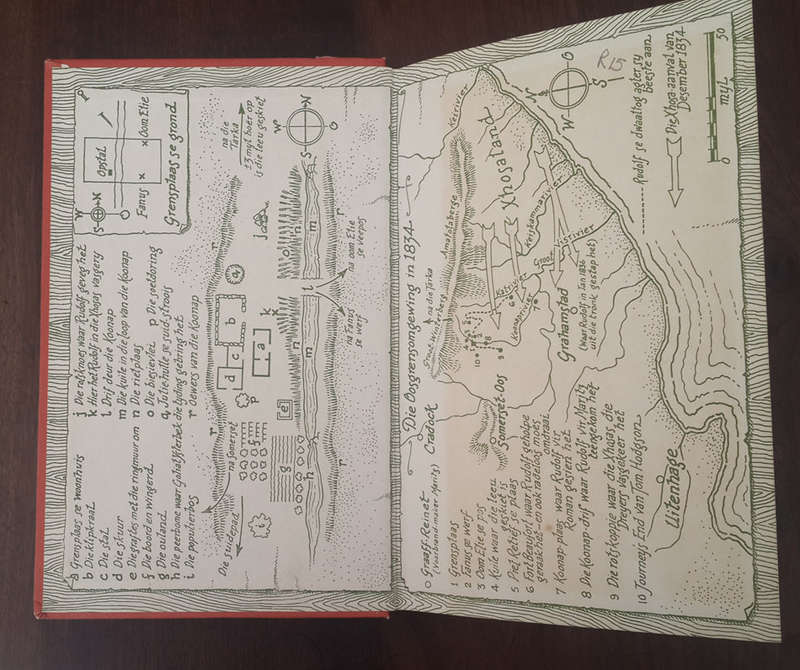 a Grensplaas se woonhuis
b Die klipkraal
c Die stal
d Die skuur
e Die graftes met die ringmuur om
f Die boord en wingerd
g Die ouland
h Die peerbome waar die gebring het
i Die populierbos
j Die rotsknoes waar Rudolf het
k Hier het Rudolf in die Xhosas vasgery
l Drif deur die Koonap
m Die kuile in die loop van die Koonap
n Die rietplaas
o Die biesievlei p Die
q se
r Oewers van die Koonap
W
S N
O
Opstal
Fanus x x Oom Elie
Grensplaas se grond
Die suidepad
na Somerset
na die Tarka
± 3 myl hoer op is die leeu geskiet
W
S N
O
a
b
c
d
e
f
g
h
i
j
k
l
m
m
n
o
p
q
r
r
r
r
na Fanus se werf
na oom Elie se veepos
Die Oosgrensomgewing in 1834
Graaff-Reinet
(Voorbrand-maker Maritz)
Cradock
na die Tarka
Groot Winterberg
Amatolaberge
Keirivier
Xhosaland
Keiskammarivier
Visrivier
Koonaprivier
Somerset-Oos
Grahamstad
(Waar Rudolf in Jan 1836 uit die tronk gestap het)
Uitenhage
1 Grensplaas
2 Fanus se werf
3 Oom Elie se pos
4 Kuile waar die leeu geskiet is
5 Piet Retief se plaas
6 waar Rudolf gehelpe geraak het – en ook radeloos moes omdraai
7 Koonap-plaas waar Rudolf vir Roman gesien het
8 Die Koonap-drif waar Rudolf vir Maritz teengekom het
9 Die rotskoppie waar die Xhosas die Dreyers vasgekeer het
10 Journeys End van Tom Hodgson
N
W O
S
R15
Rudolf se dwaaltog agter sy beeste aan
Die Xhosa-aanval van Desember 1834
0 MYL 50